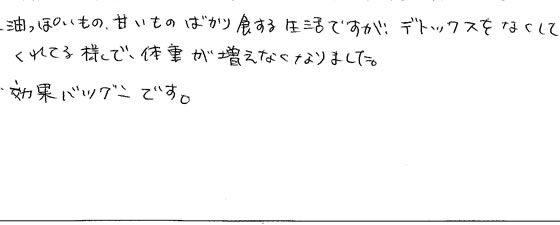 油っぽいもの、甘いものばかり食する生活ですが、デトックスをなくして
くれてる様しで、体重が増えなくなりました。
効果バツグンです。